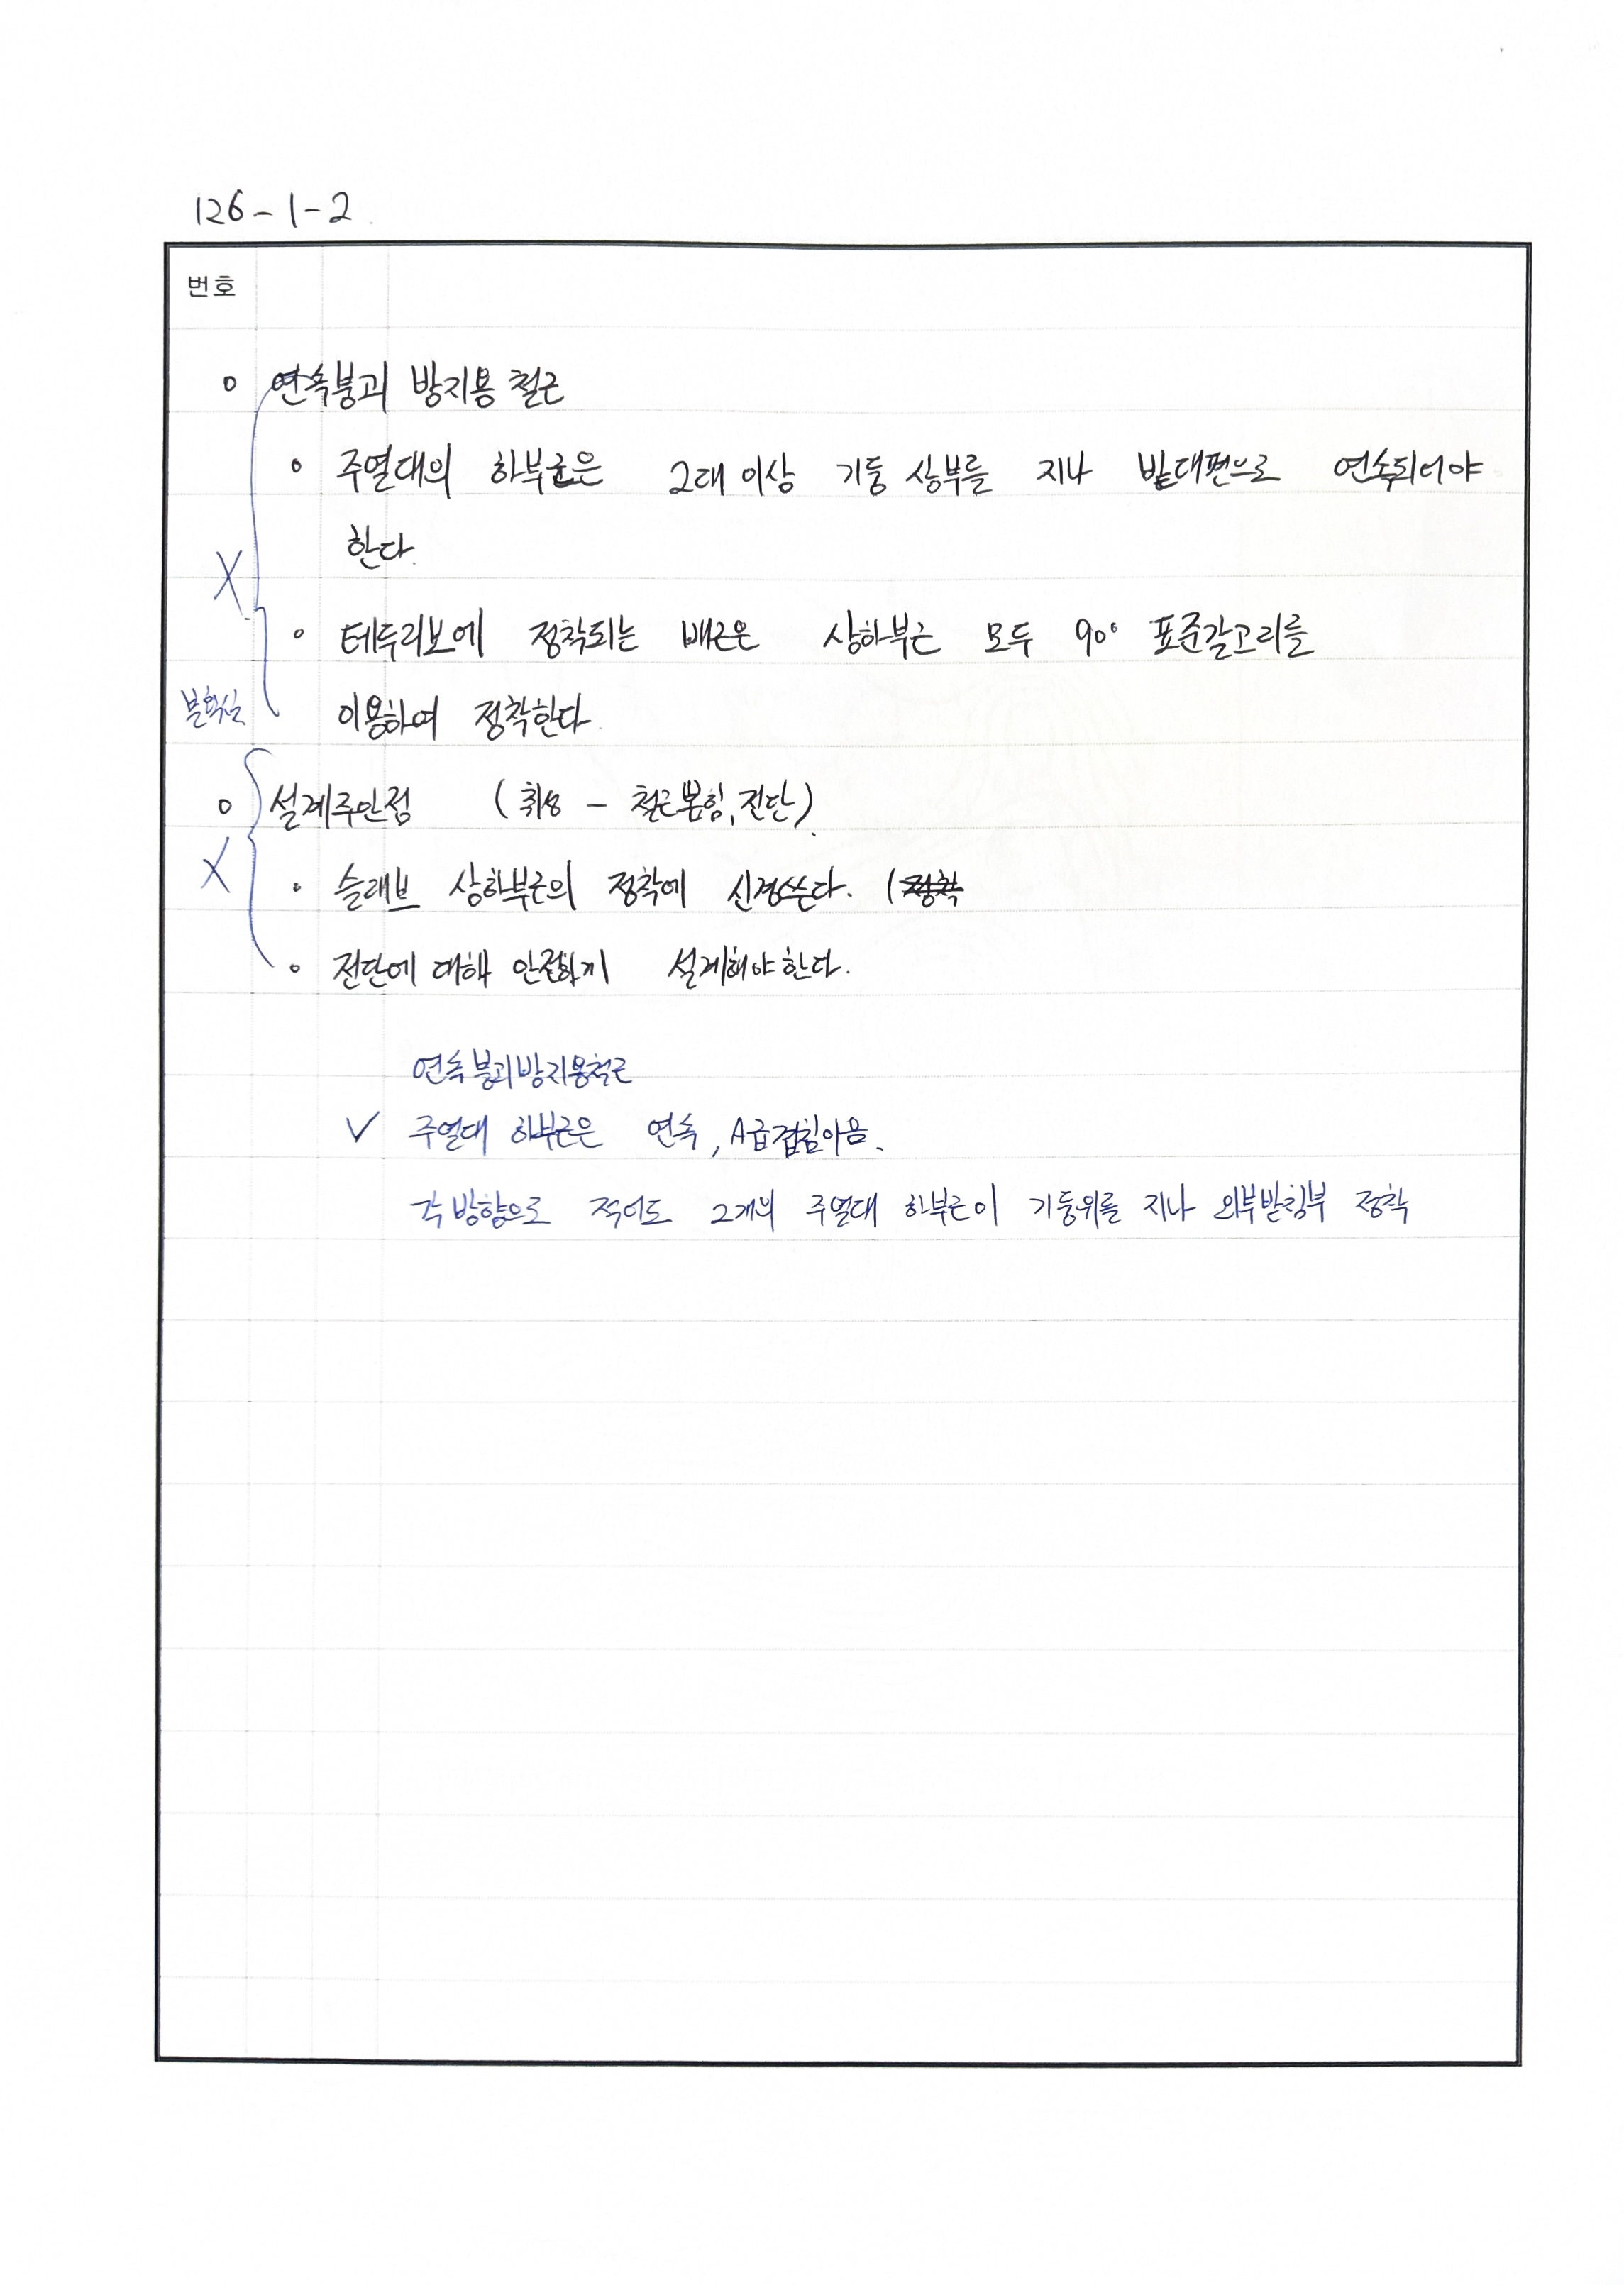 126-1-2
번호
연속붕괴 방지용 철근
주열대의 하부근은 2대 이상 기둥 상부를 지나 반대편으로 연속되어야
한다.
X
테두리보에 정착되는 배근은 상하부근 모두 90° 표준갈고리를
불확실 이용하여 정착한다.
설계주안점 (취성 - 철근뽑힘, 전단).
X 슬래브 상하부근의 정착에 신경쓴다. (정착
전단에 대해 안전하게 설계해야한다.
연속붕괴방지용철근
✓ 주열대 하부근은 연속, A급겹침이음.
각 방향으로 적어도 2개의 주열대 하부근이 기둥위를 지나 외부받침부 정착